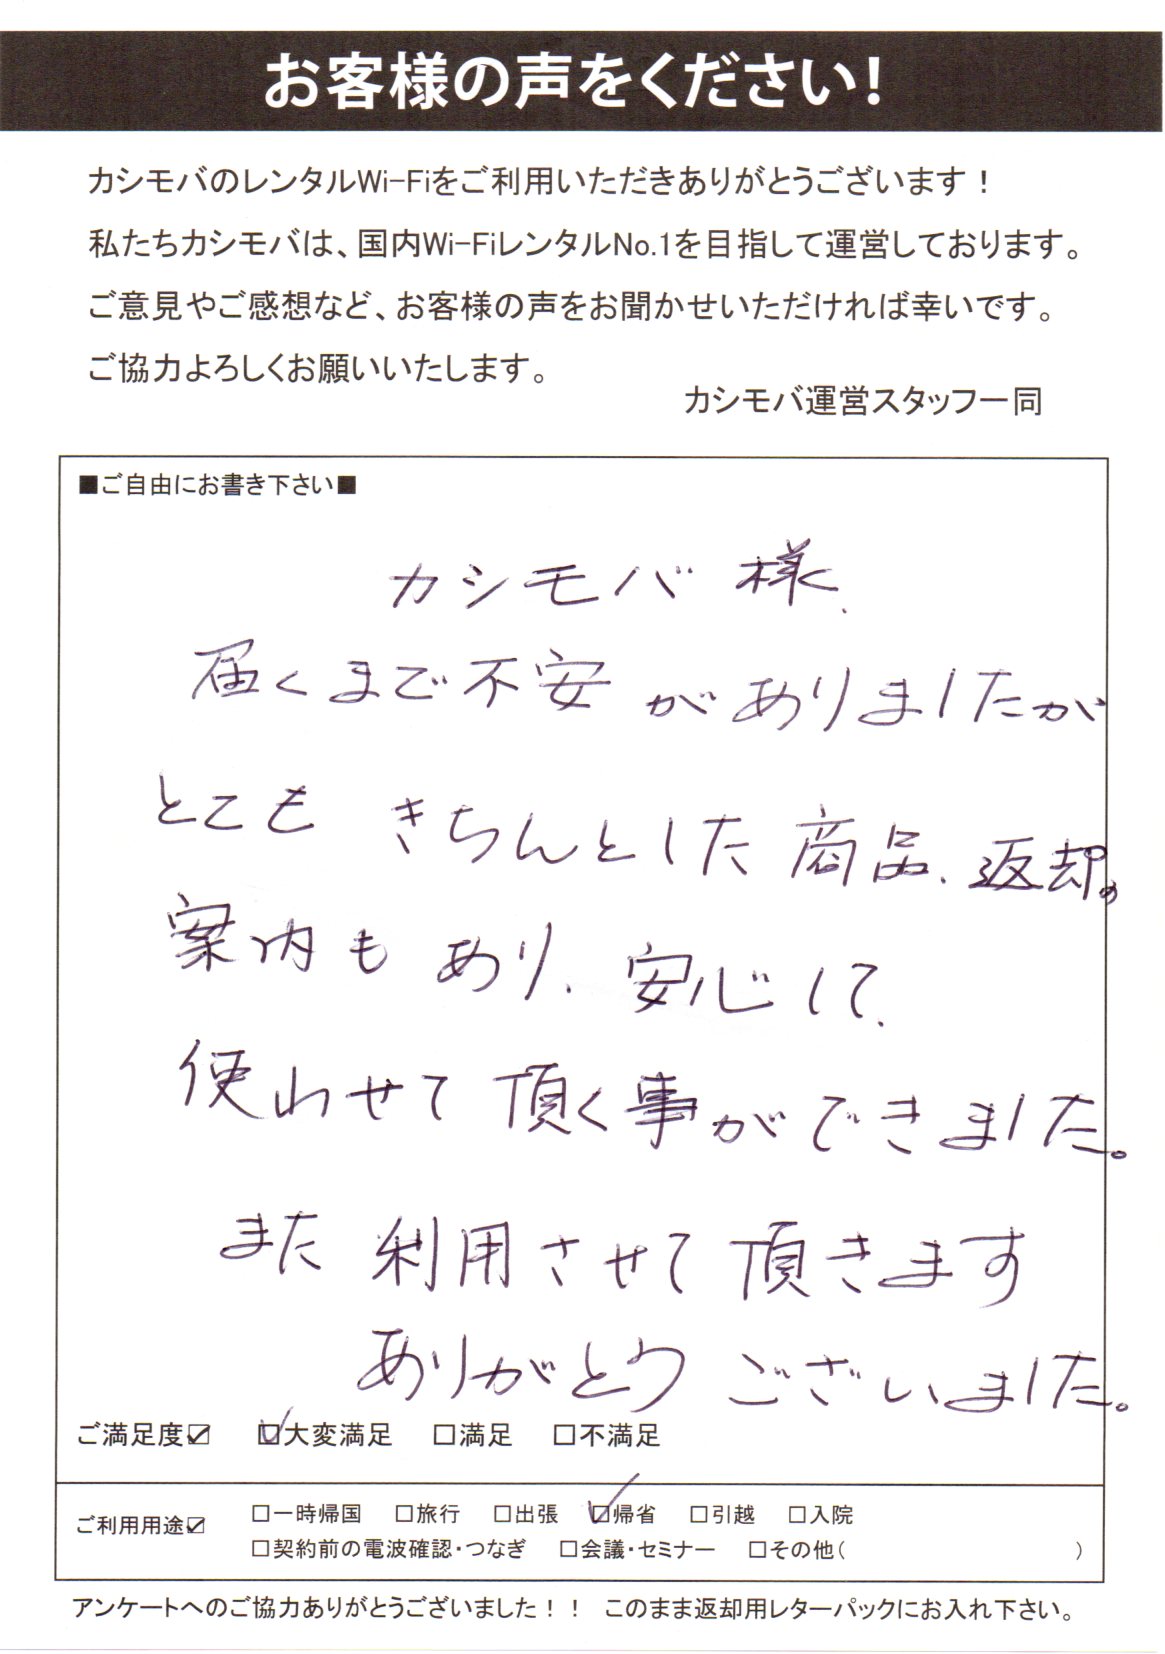 お客様の声をください!
カシモバのレンタルWi-Fiをご利用いただきありがとうございます！
私たちカシモバは、国内Wi-FiレンタルNo.1を目指して運営しております。
ご意見やご感想など、お客様の声をお聞かせいただければ幸いです。
ご協力よろしくお願いいたします。
カシモバ運営スタッフ一同
■ご自由にお書き下さい■
カシモバ 様、
届くまで不安がありましたが
とても きちんとした商品、返却の
案内もあり、安心して、
使わせて頂く事ができました。
また 利用させて頂きます
ありがとう ございました。
ご満足度☑ ☑大変満足 □満足 □不満足
ご利用用途☑ □一時帰国 □旅行 □出張 ☑帰省 □引越 □入院
□契約前の電波確認・つなぎ □会議・セミナー □その他( )
アンケートへのご協力ありがとうございました！！ このまま返却用レターパックにお入れ下さい。